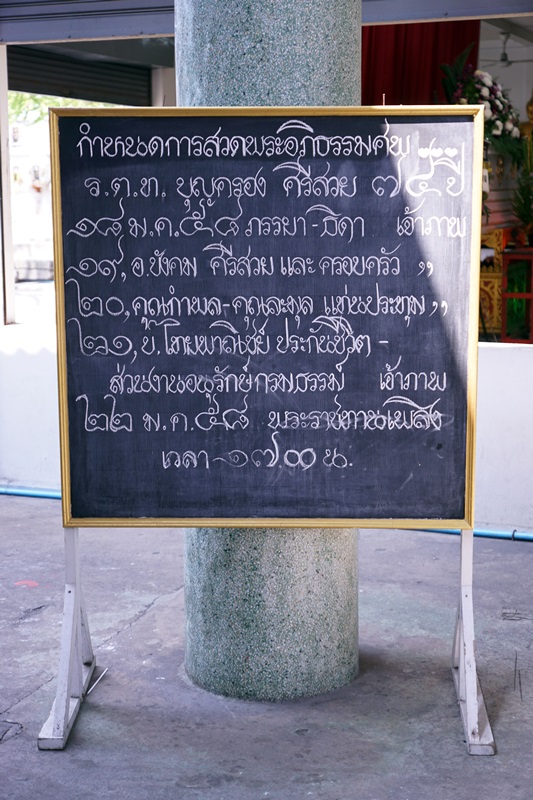 กำหนดการสวดพระอภิธรรมศพ
ร.ต.ท. บุญครอง ศิริสวย ๗๕ ปี
๑๘ ม.ค. ๕๘ ภรรยา - ธิดา เจ้าภาพ
๑๙, อ.บังคม ศิริสวย และ ครอบครัว ,,
๒๐, คุณกำพล - คุณละมุล แท่นประทุม ,,
๒๑, บ. ไทยพาณิชย์ ประกันชีวิต -
ส่วนงานอนุรักษ์กรมธรรม์ เจ้าภาพ
๒๒ ม.ค. ๕๘ พระราชทานเพลิง
เวลา ๑๗๐๐ น.